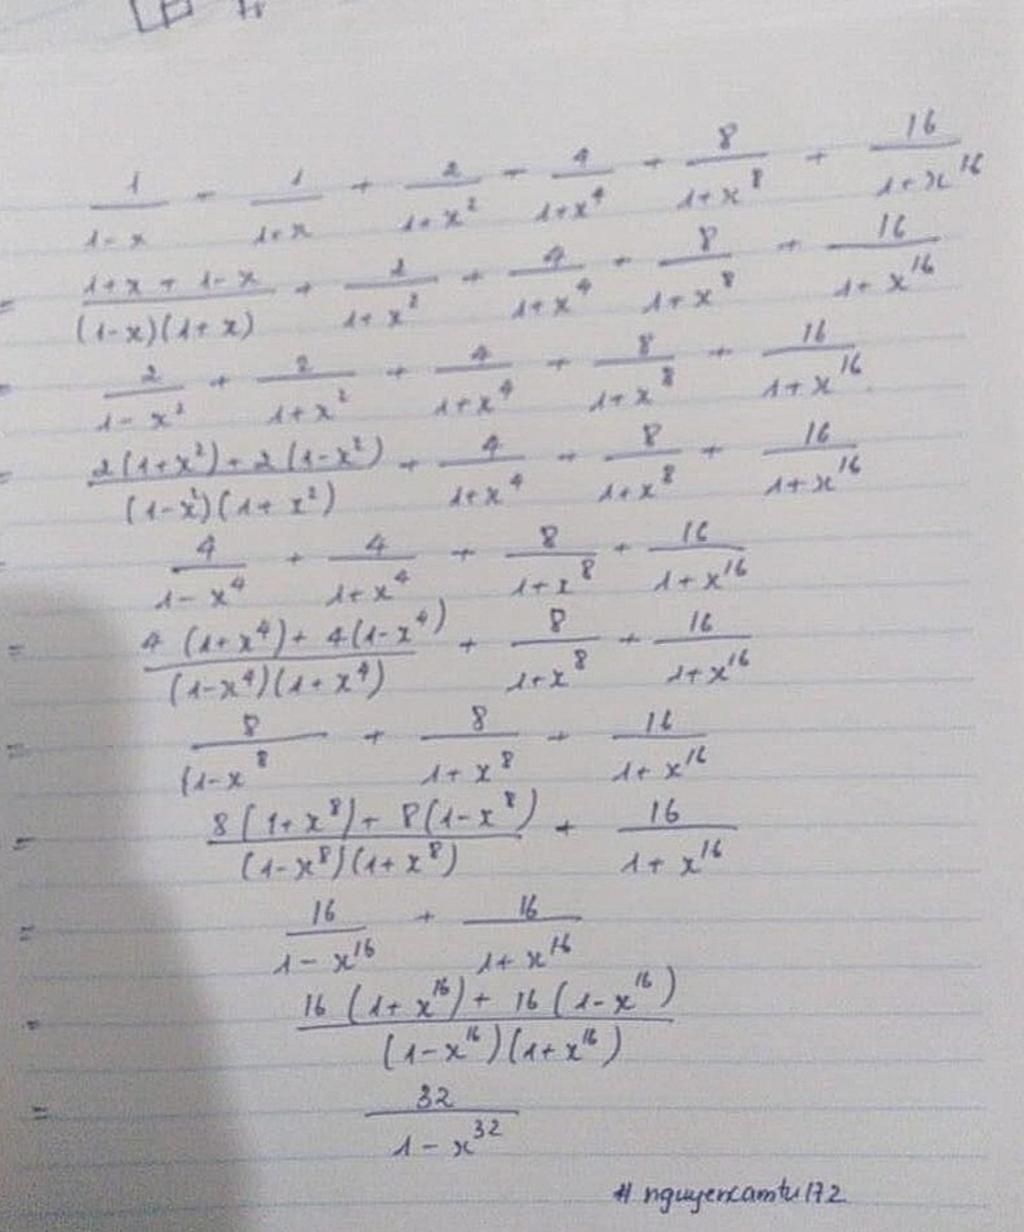 1/(1-x) + 1/(1+x) + 2/(1+x^2) + 4/(1+x^4) + 8/(1+x^8) + 16/(1+x^16)
= (1+x+1-x)/((1-x)(1+x)) + 2/(1+x^2) + 4/(1+x^4) + 8/(1+x^8) + 16/(1+x^16)
= 2/(1-x^2) + 2/(1+x^2) + 4/(1+x^4) + 8/(1+x^8) + 16/(1+x^16)
= (2(1+x^2)+2(1-x^2))/((1-x^2)(1+x^2)) + 4/(1+x^4) + 8/(1+x^8) + 16/(1+x^16)
= 4/(1-x^4) + 4/(1+x^4) + 8/(1+x^8) + 16/(1+x^16)
= (4(1+x^4)+4(1-x^4))/((1-x^4)(1+x^4)) + 8/(1+x^8) + 16/(1+x^16)
= 8/(1-x^8) + 8/(1+x^8) + 16/(1+x^16)
= (8(1+x^8)+8(1-x^8))/((1-x^8)(1+x^8)) + 16/(1+x^16)
= 16/(1-x^16) + 16/(1+x^16)
= (16(1+x^16)+16(1-x^16))/((1-x^16)(1+x^16))
= 32/(1-x^32)
# nguyencamtu172